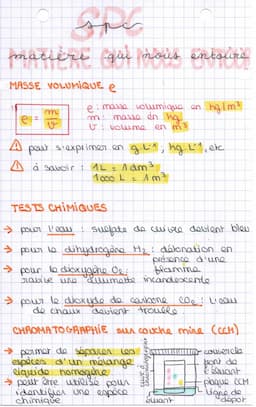 SPC
matière qui nous entoure
MASSE VOLUMIQUE ρ
ρ = m/V
ρ : masse volumique en kg/m³
m : masse en kg
V : volume en m³
⚠ peut s'exprimer en g.L⁻¹, kg.L⁻¹, etc
⚠ à savoir : 1L = 1dm³
1000L = 1m³
TESTS CHIMIQUES
→ pour l'eau : sulfate de cuivre devient bleu
→ pour le dihydrogène H₂ : détonation en
présence d'une
flamme
→ pour le dioxygène O₂ :
ravive une allumette incandescente
→ pour le dioxyde de carbone CO₂ : l'eau
de chaux devient trouble
CHROMATOGRAPHIE sur couche mine (CCM)
→ permet de séparer les
espèces d'un mélange
liquide homogène
→ peut être utilisé pour
identifier une espèce
chimique
couvercle
front de
l'éluant
plaque CCM
ligne de
dépôt
éluant